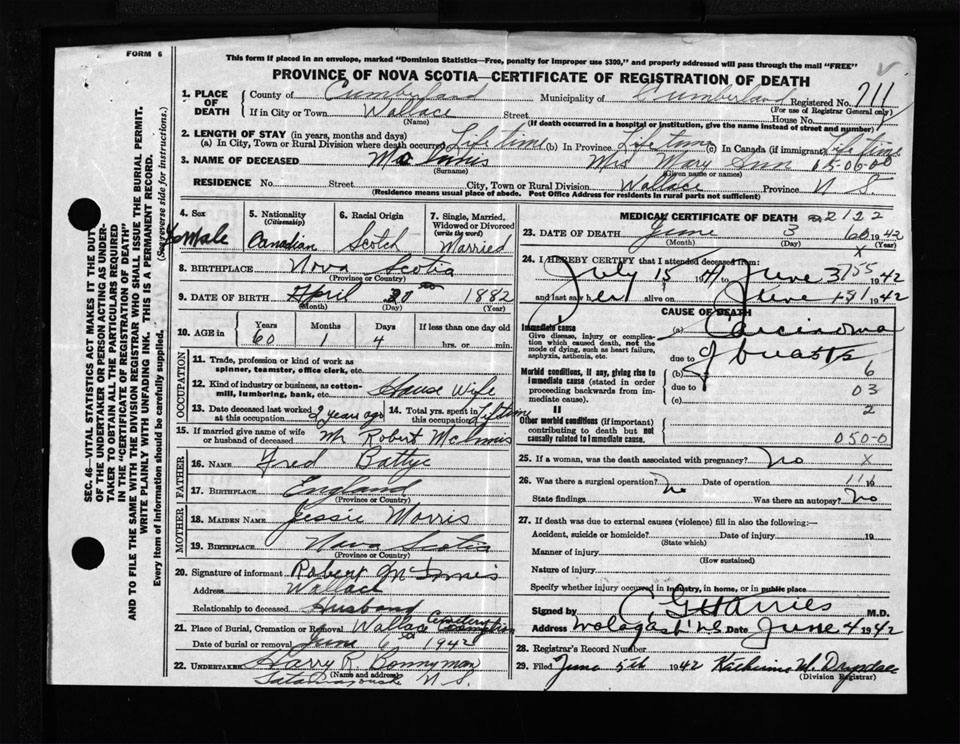 FORM 6
This form if placed in an envelope, marked "Dominion Statistics—Free, penalty for improper use $300," and properly addressed will pass through the mail "FREE"
PROVINCE OF NOVA SCOTIA—CERTIFICATE OF REGISTRATION OF DEATH
SEC. 46—VITAL STATISTICS ACT MAKES IT THE DUTY
OF THE UNDERTAKER OR PERSON ACTING AS UNDER-
TAKER TO OBTAIN ALL THE PARTICULARS REQUIRED
IN THE "CERTIFICATE OF REGISTRATION OF DEATH"
AND TO FILE THE SAME WITH THE DIVISION REGISTRAR WHO SHALL ISSUE THE BURIAL PERMIT.
WRITE PLAINLY WITH UNFADING INK. THIS IS A PERMANENT RECORD.
Every item of information should be carefully supplied. (See reverse side for instructions.)
1. PLACE OF DEATH County of Cumberland Municipality of Cumberland Registered No. 711
(For use of Registrar General only)
If in City or Town Wallace Street House No.
(Name) (If death occurred in a hospital or institution, give the name instead of street and number)
2. LENGTH OF STAY (in years, months and days)
(a) In City, Town or Rural Division where death occurred Life time (b) In Province Life time (c) In Canada (if immigrant) Life time
3. NAME OF DECEASED Mc Innis Mrs Mary Ann
(Surname) (Given name or names)
RESIDENCE No. Street City, Town or Rural Division Wallace Province N. S.
(Residence means usual place of abode. Post Office Address for residents in rural parts not sufficient)
4. Sex Female
5. Nationality (Citizenship) Canadian
6. Racial Origin Scotch
7. Single, Married, Widowed or Divorced (write the word) Married
8. BIRTHPLACE Nova Scotia
(Province or Country)
9. DATE OF BIRTH April 1882
(Month) (Day) (Year)
10. AGE in Years 60 Months 1 Days 4 If less than one day old hrs. or min.
OCCUPATION
11. Trade, profession or kind of work as spinner, teamster, office clerk, etc.
12. Kind of industry or business, as cotton-mill, lumbering, bank, etc. House Wife
13. Date deceased last worked at this occupation 2 years ago 14. Total yrs. spent in this occupation Life time
15. If married give name of wife or husband of deceased Mr Robert McInnis
FATHER
16. NAME Fred Battye
17. BIRTHPLACE England
(Province or Country)
MOTHER
18. MAIDEN NAME Jessie Morris
19. BIRTHPLACE Nova Scotia
(Province or Country)
20. Signature of informant Robert McInnis
Address Wallace
Relationship to deceased Husband
21. Place of Burial, Cremation or Removal Wallace Cemetery
Date of burial or removal June 6 1942
22. UNDERTAKER Harry R. Bonnyman
(Name and address)
N. S.
MEDICAL CERTIFICATE OF DEATH 2122
23. DATE OF DEATH June 3 1942
(Month) (Day) (Year)
24. I HEREBY CERTIFY that I attended deceased from:
July 15 1941 June 3 1942
and last saw her alive on June 1942
CAUSE OF DEATH
Immediate cause
Give disease, injury or complication which caused death, not the mode of dying, such as heart failure, asphyxia, asthenia, etc.
(a) Carcinoma
due to of breasts
Morbid conditions, if any, giving rise to immediate cause (stated in order proceeding backwards from immediate cause).
(b) 6
due to 03
(c) 2
II
Other morbid conditions (if important) contributing to death but not causally related to immediate cause.
050-0
25. If a woman, was the death associated with pregnancy? No X
26. Was there a surgical operation? No Date of operation 19
State findings Was there an autopsy? No
27. If death was due to external causes (violence) fill in also the following:—
Accident, suicide or homicide? Date of injury 19
(State which)
Manner of injury
(How sustained)
Nature of injury
Specify whether injury occurred in industry, in home, or in public place
Signed by C G Harries M.D.
Address Date June 4 1942
28. Registrar's Record Number
29. Filed June 5th 1942 Katherine M. Drysdale
(Division Registrar)